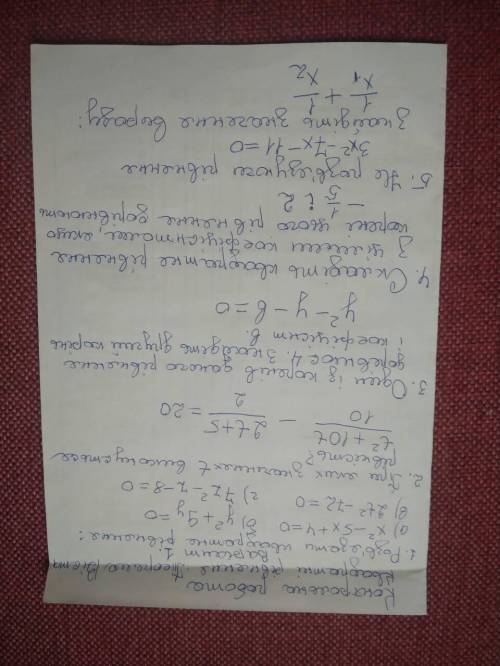 Контрольна робота
Квадратні рівняння. Теорема Вієта
Варіант 1.
1. Розв'язати квадратне рівняння:
а) x² - 5x + 4 = 0 б) y² + 9y = 0
в) 2t² - 72 = 0 г) 7z² - z - 8 = 0
2. При яких значеннях t виконується
рівність?
t² + 10t / 10 - 2t + 5 / 2 = 20
3. Один із коренів даного рівняння
дорівнює 4. Знайдіть другий корінь
і коефіцієнт b.
y² - y - b = 0
4. Складіть квадратне рівняння
з цілими коефіцієнтами, якщо
корені цього рівняння дорівнюють
- 1/5 і 2
5. Не розв'язуючи рівняння
3x² - 7x - 11 = 0
Знайдіть значення виразу:
1/x₁ + 1/x₂